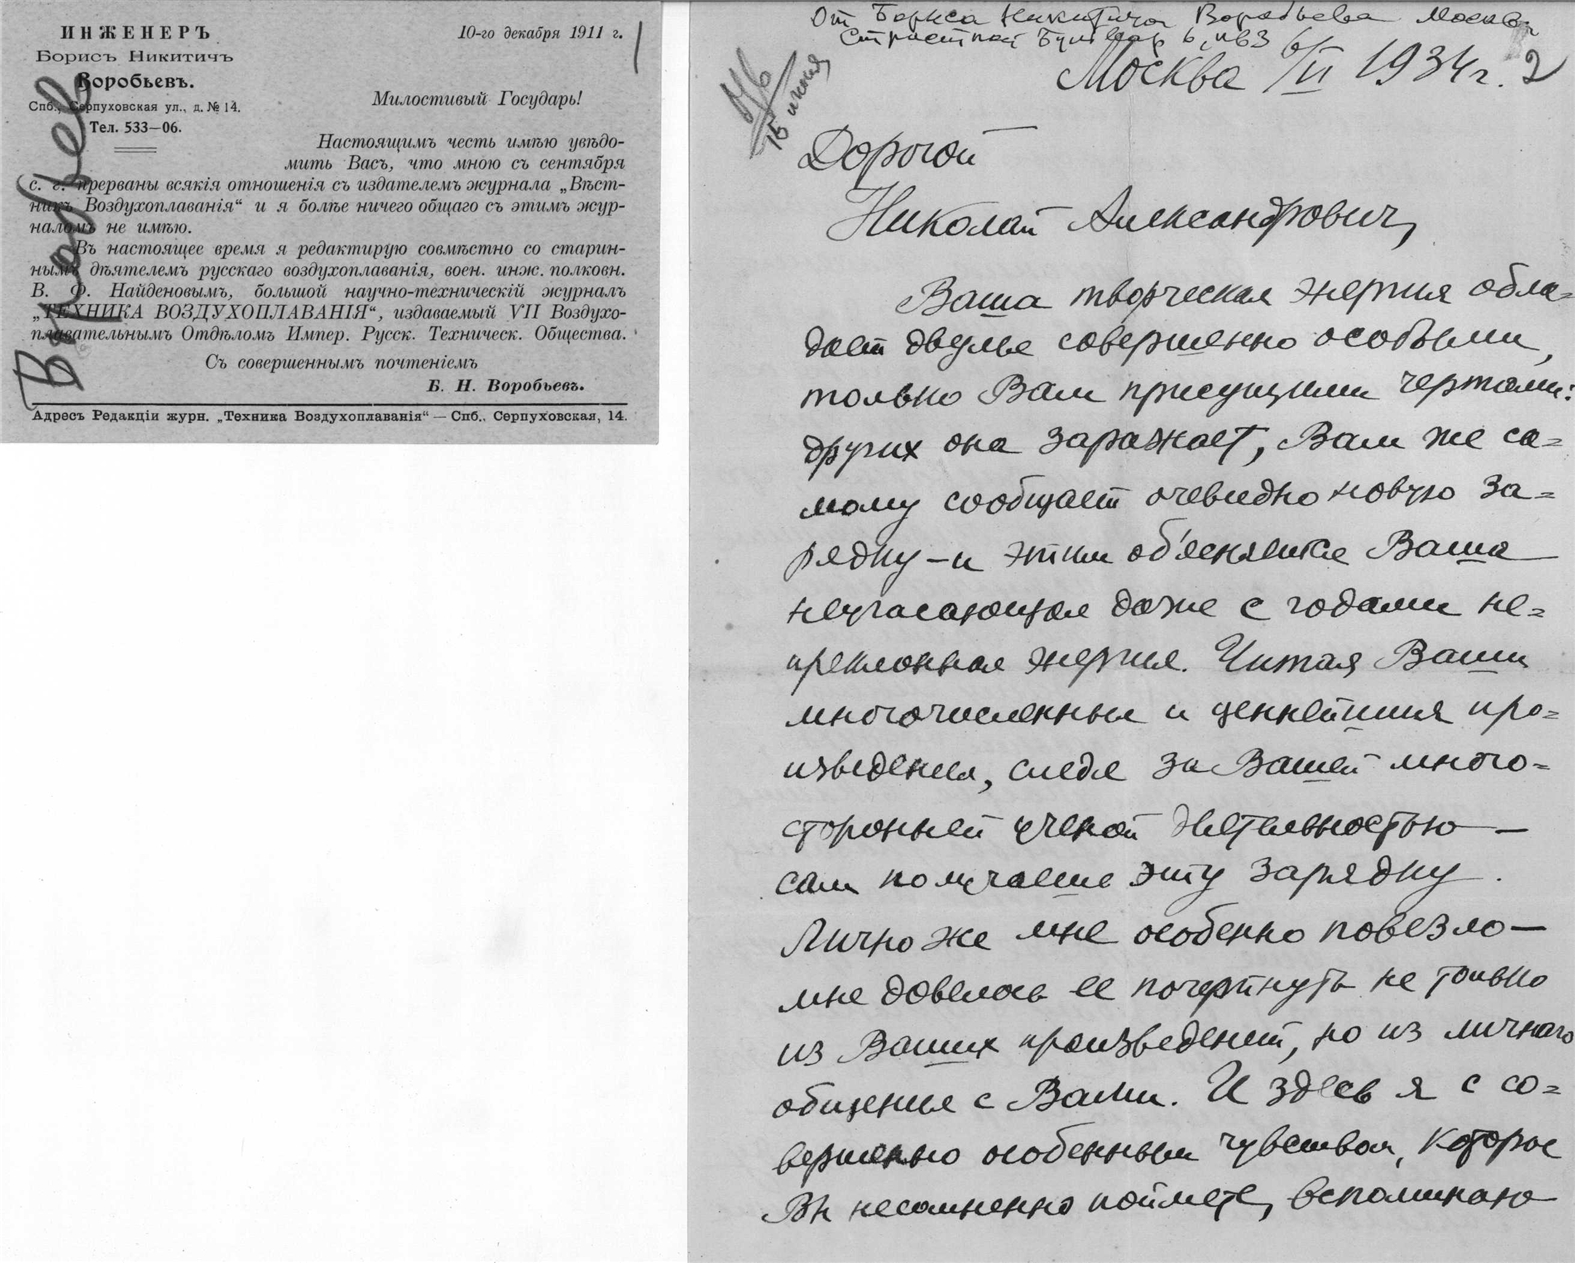 ИНЖЕНЕРЪ
Борисъ Никитичъ
Воробьевъ.
Спб., Серпуховская ул., д. № 14.
Тел. 533—06.
10-го декабря 1911 г.
Милостивый Государь!
Настоящимъ честь имѣю увѣдо-
мить Васъ, что мною съ сентября
с. г. прерваны всякія отношенія съ издателемъ журнала „Вѣст-
никъ Воздухоплаванія“ и я болѣе ничего общаго съ этимъ жур-
наломъ не имѣю.
Въ настоящее время я редактирую совмѣстно со старин-
нымъ дѣятелемъ русскаго воздухоплаванія, воен. инж. полковн.
В. Ф. Найденовымъ, большой научно-техническій журналъ
„ТЕХНИКА ВОЗДУХОПЛАВАНІЯ“, издаваемый VII Воздухо-
плавательнымъ Отдѣломъ Импер. Русск. Техническ. Общества.
Съ совершеннымъ почтеніемъ
Б. Н. Воробьевъ.
Адресъ Редакціи журн. „Техника Воздухоплаванія“ — Спб., Серпуховская, 14.
Воробьев
1
От Бориса Никитича Воробьева Москва
Страстной Бульвар 6, кв 3
15 июня
Москва 6/II 1934 г. 2
Дорогой
Николай Александрович,
Ваша творческая энергия обла=
дает двумя совершенно особыми,
только Вам присущими чертами:
других она заражает, Вам же са=
мому сообщает очевидно новую за=
рядку – и этим об'ясняется Ваша
неугасающая даже с годами не=
преклонная энергия. Читая Ваши
многочисленныя и ценнейшия про=
изведения, следя за Вашей много=
сторонней ученой деятельностью —
сам получаешь эту зарядку.
Лично же мне особенно повезло —
мне довелось ее почерпнуть не только
из Ваших произведений, но из личнаго
общения с Вами. И здесь я с со=
вершенно особенным чувством, которое
Вы несомненно поймете, вспоминаю